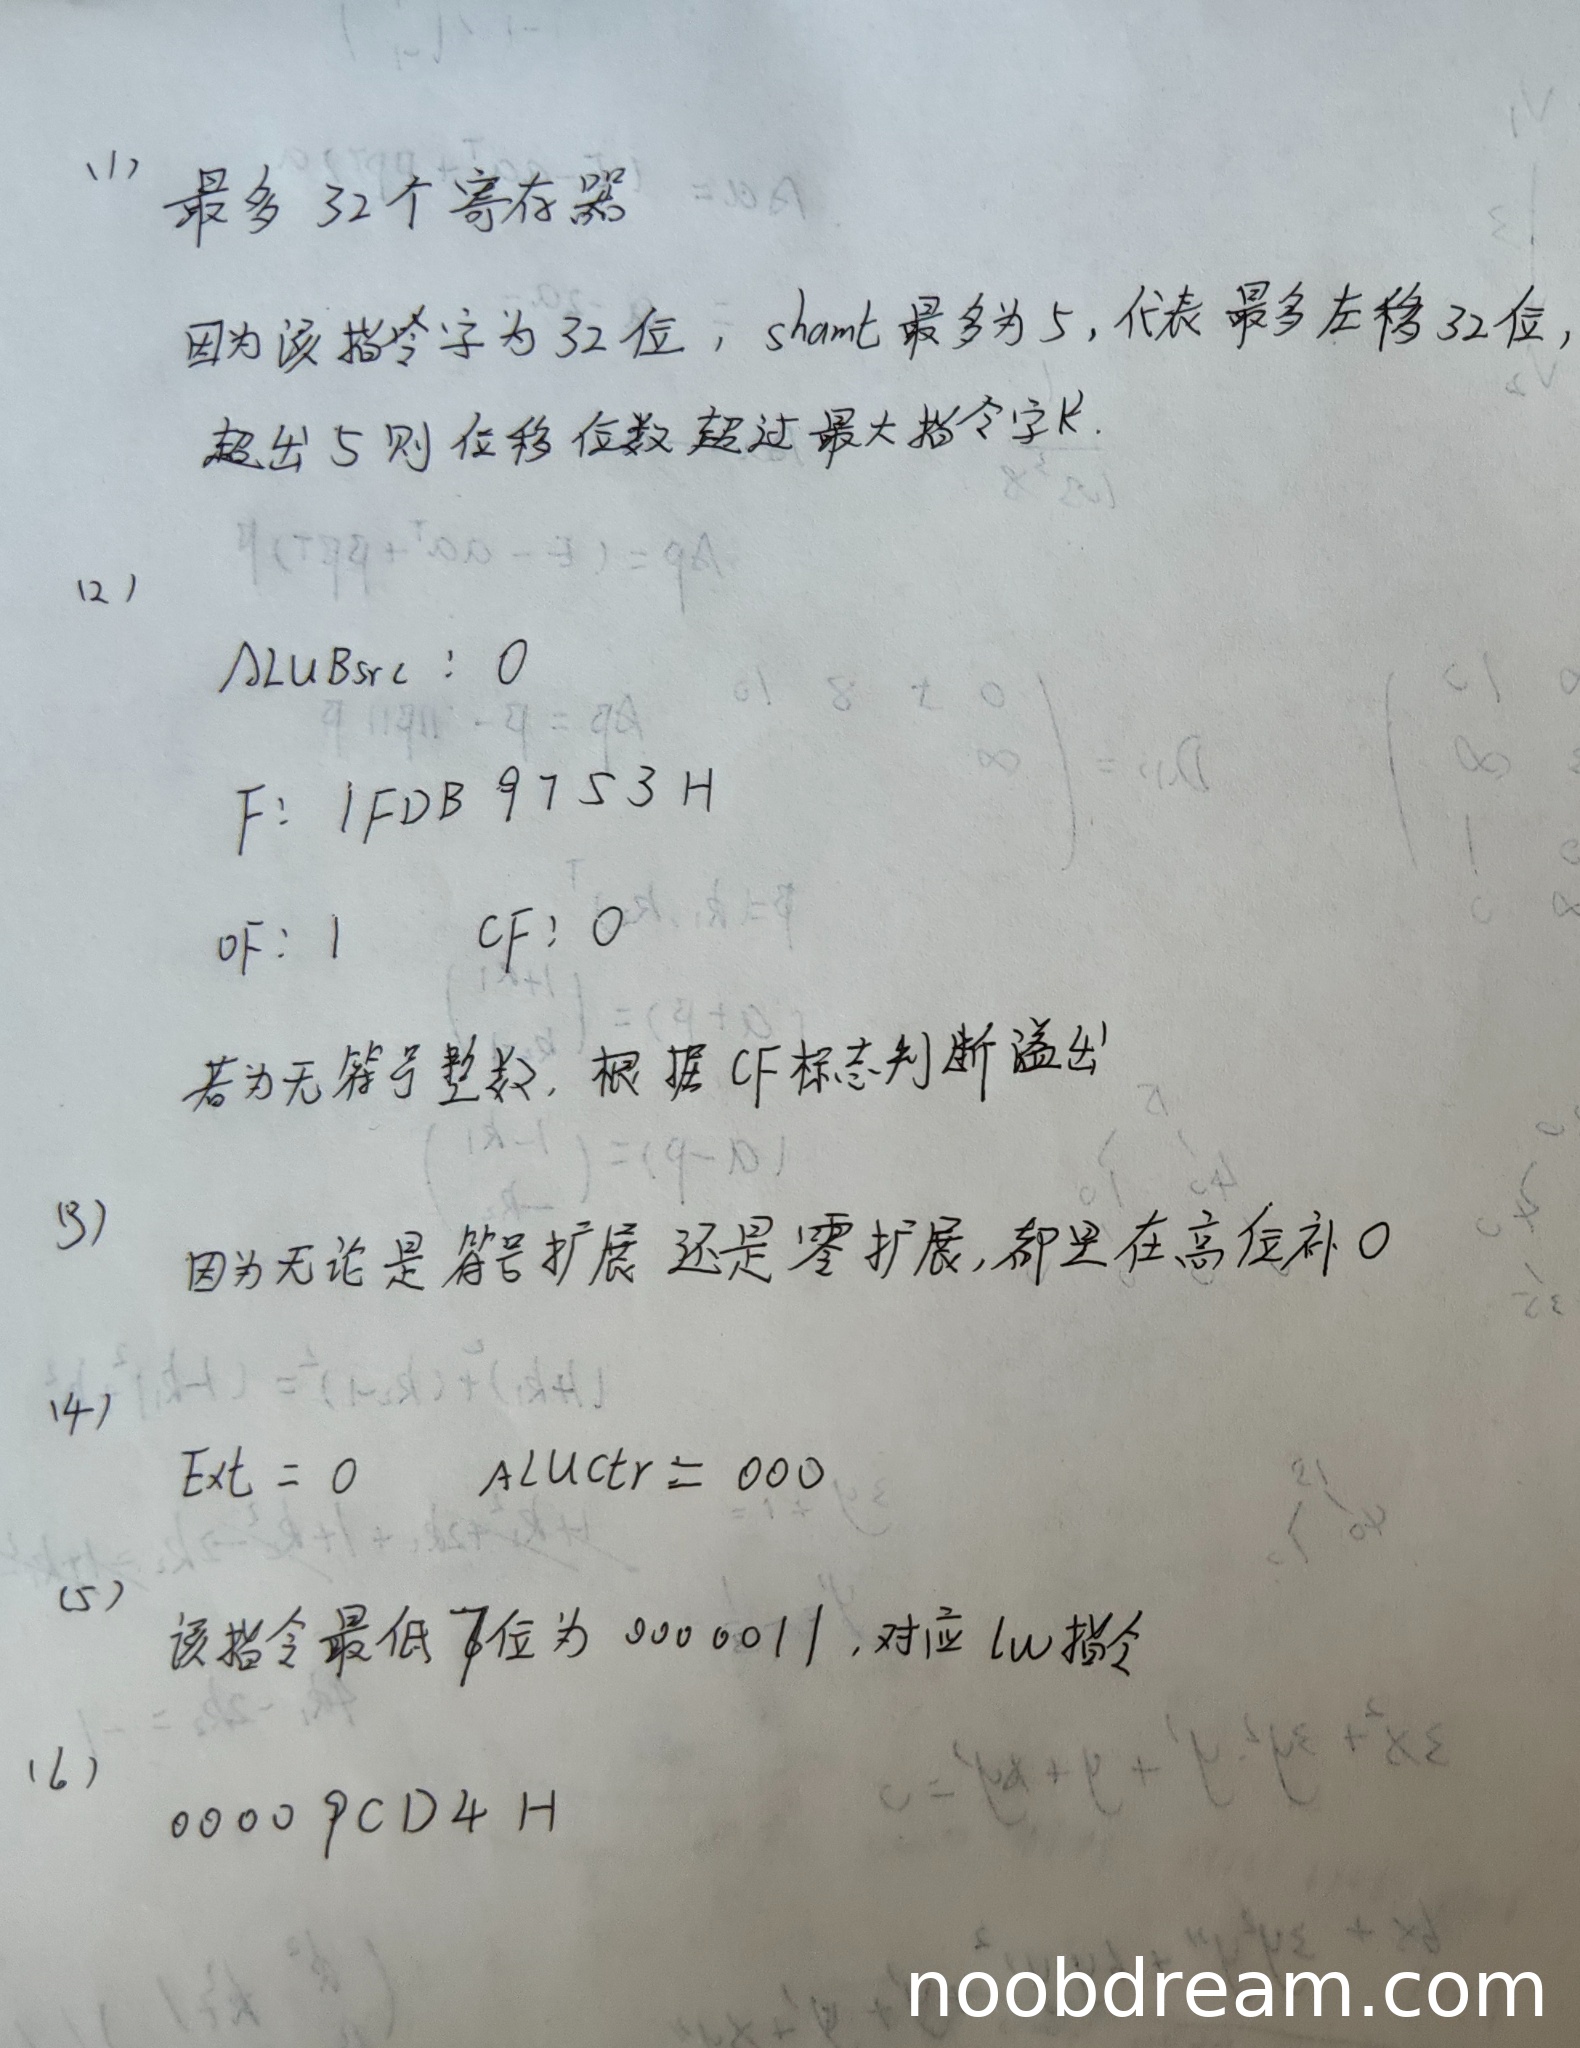 (1)
最多 32个寄存器
因为该指令字为32位，shamt最多为5，代表最多左移32位，
超出5则位移位数超过最大指令字长.
(2)
ALUBsrc：0
F：1FDB9753H
OF：1 CF：0
若为无符号整数，根据CF标志判断溢出
(3)
因为无论是符号扩展还是零扩展，都是在高位补0
(4)
Ext = 0 ALUCtr = 000
(5)
该指令最低7位为0000011，对应lw指令
(6)
00009CD4H
noobdream.com